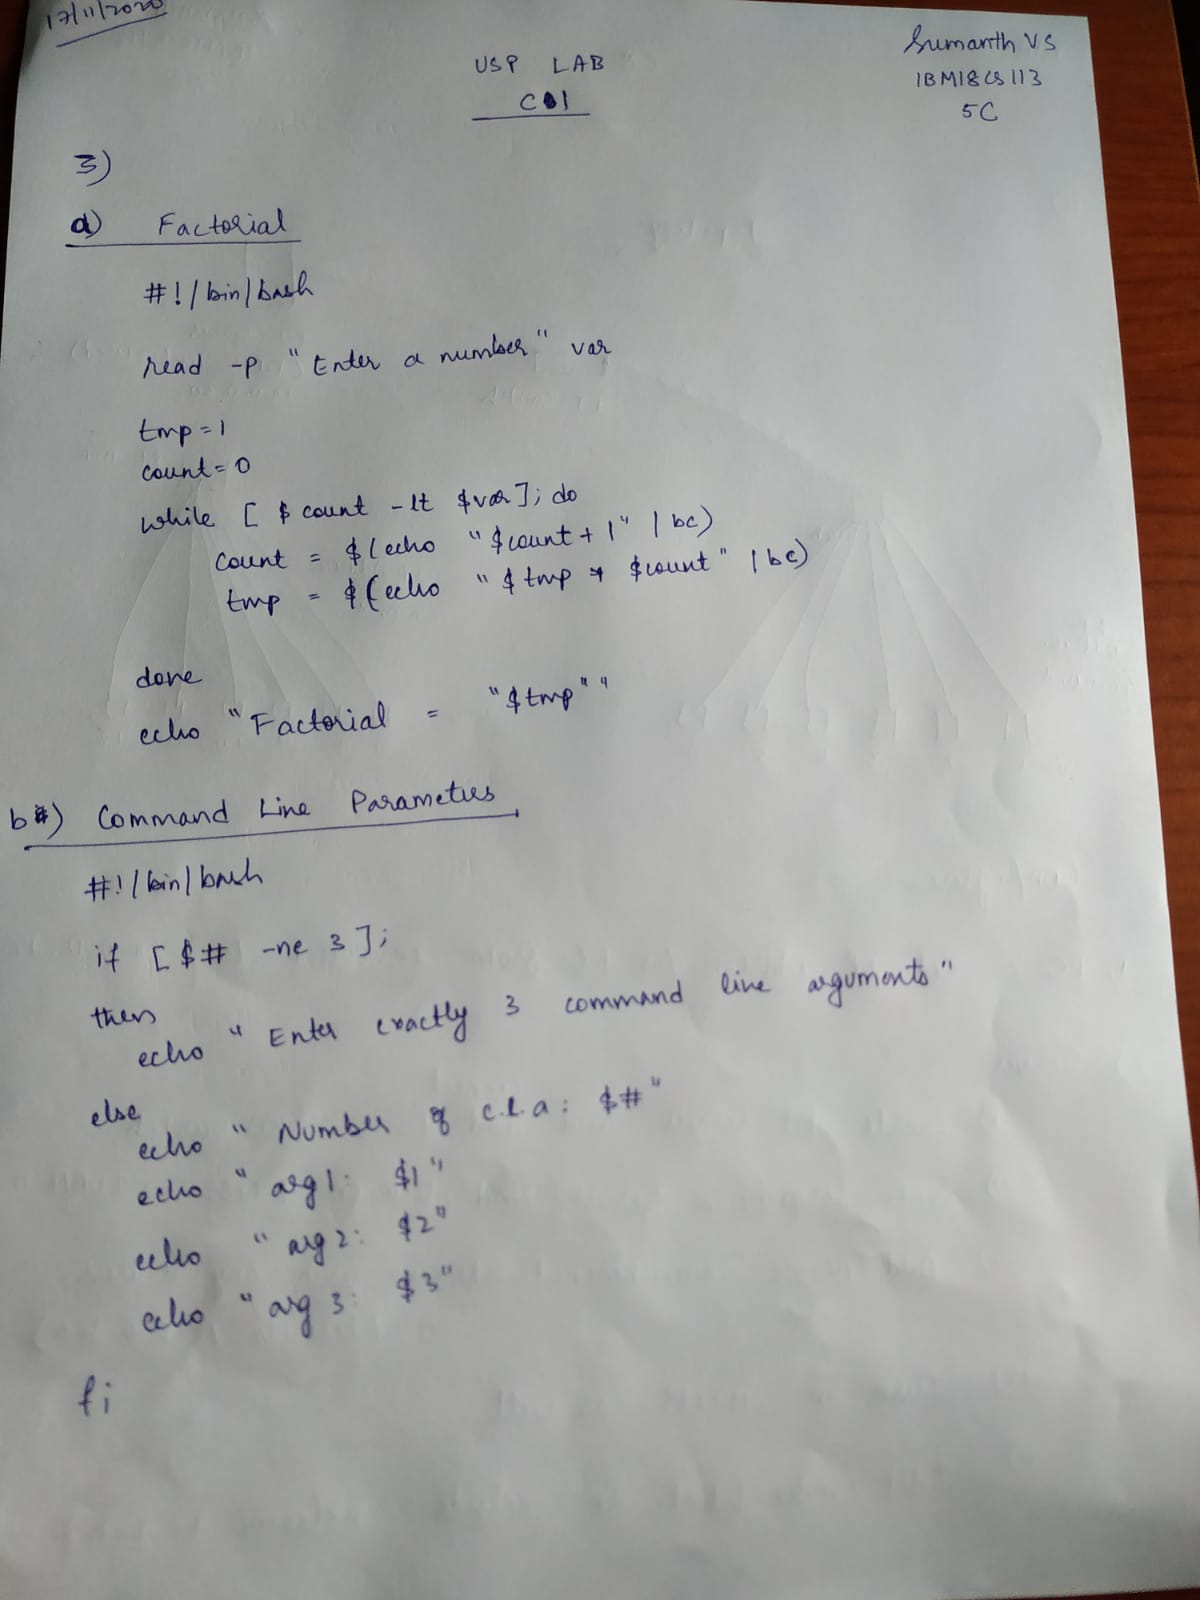 17/11/2020
Sumanth VS
1BM18CS113
5C
USP LAB
C01
3)
a) Factorial
#!/bin/bash
read -p "Enter a number" var
tmp=1
count=0
while [ $count -lt $var ]; do
count = $(echo "$count + 1" | bc)
tmp = $(echo "$tmp * $count" | bc)
done
echo "Factorial = "$tmp""
b) Command Line Parameters
#!/bin/bash
if [ $# -ne 3 ];
then
echo "Enter exactly 3 command line arguments"
else
echo "Number of c.l.a: $#"
echo "arg1: $1"
echo "arg2: $2"
echo "arg3: $3"
fi